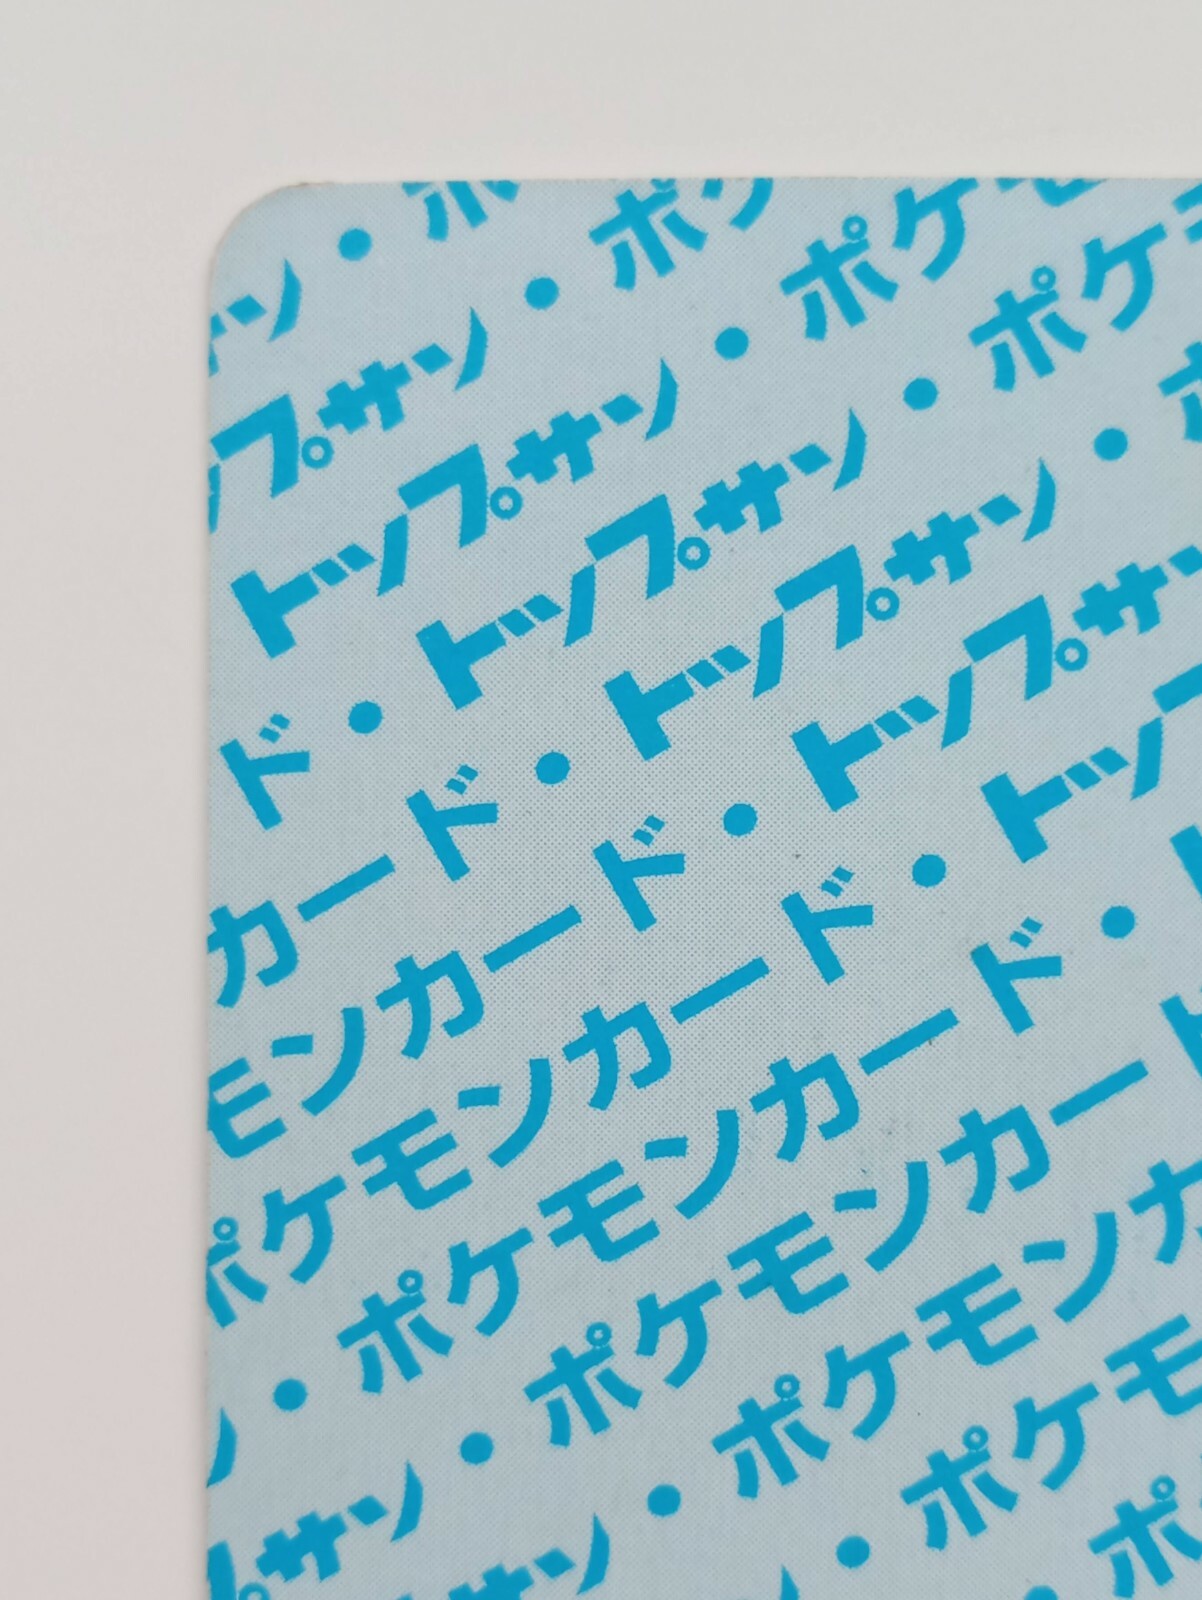 ン・ポ
プサン・ポケ
トップサン・ポケモ
ド・トップサン・ポケ
カード・トップサン・ポ
モンカード・トップサン
ポケモンカード・トップ
・ポケモンカード・
プサン・ポケモンカー
サン・ポケモンカ
・ポケモ
ポ